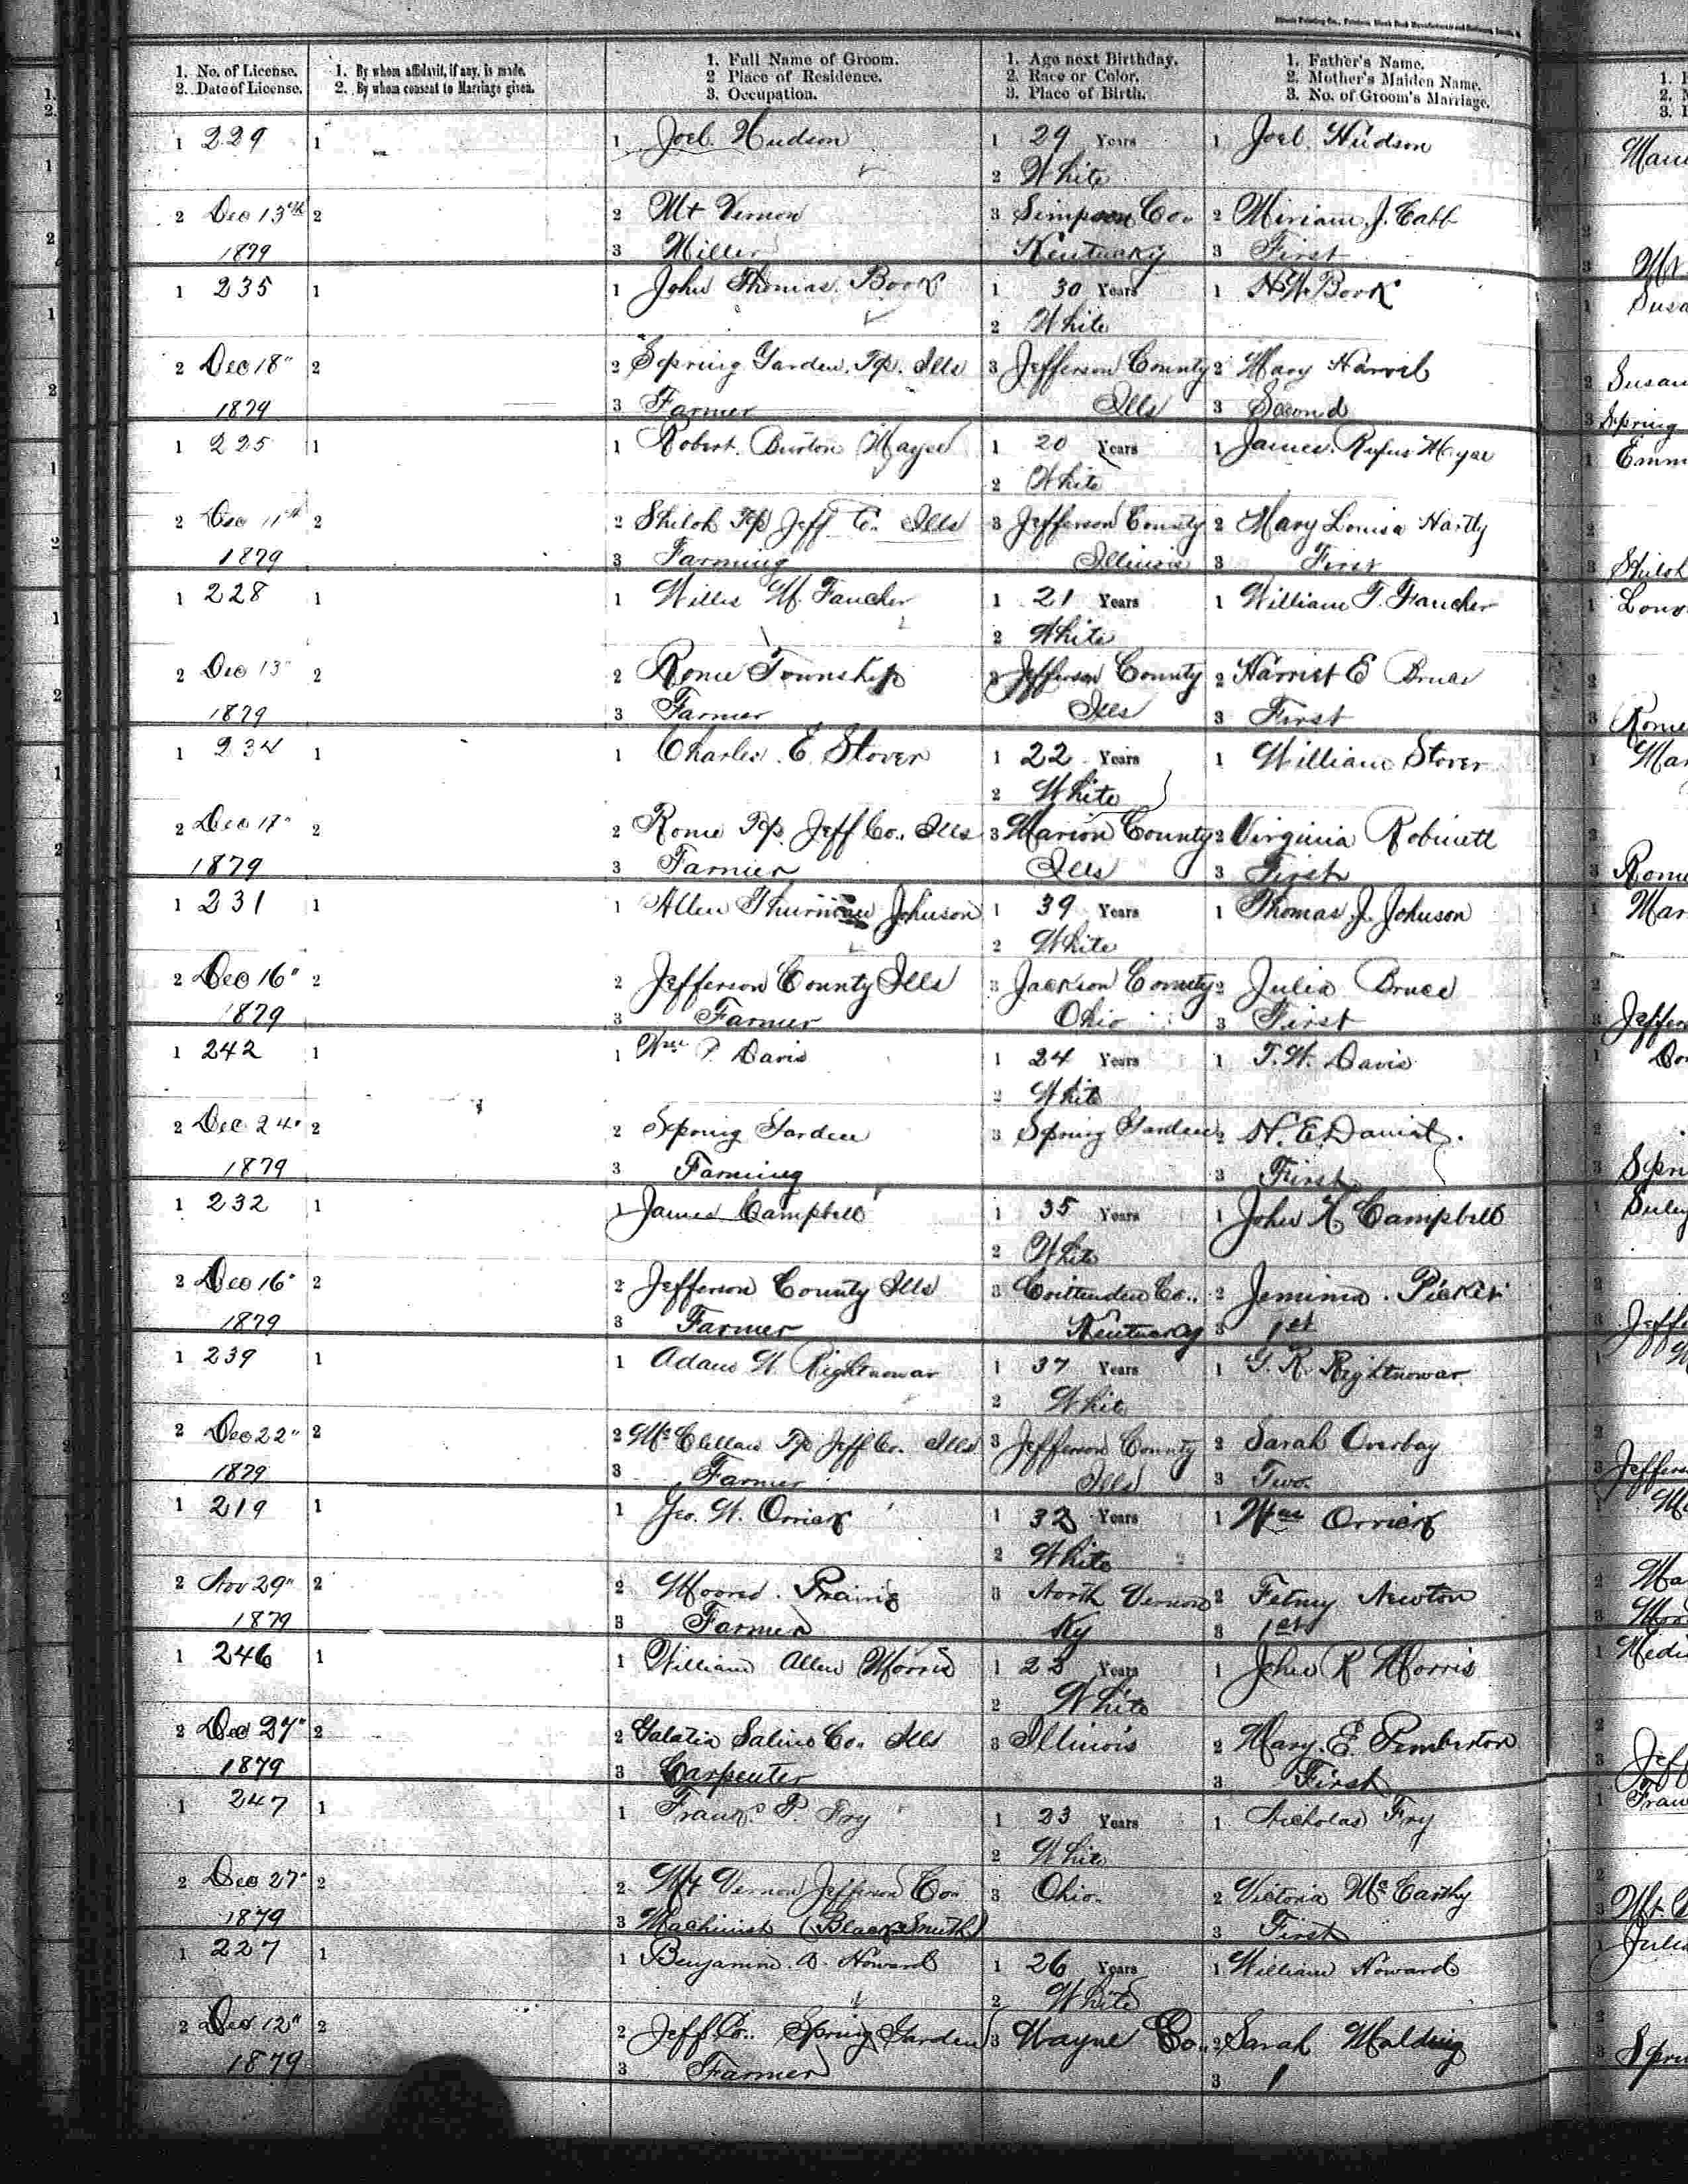 1. No. of License.
2. Date of License.
1. By whom affidavit, if any, is made.
2. By whom consent to Marriage given.
1. Full Name of Groom.
2 Place of Residence.
3. Occupation.
1. Age next Birthday.
2. Race or Color.
3. Place of Birth.
1. Father's Name.
2. Mother's Maiden Name.
3. No. of Groom's Marriage.
1 229 1 1 Joel Hudson 1 29 Years 1 Joel Hudson
2 White
2 Dec 13th 2 2 Mt Vernon 3 Simpson Co. 2 Miriam J. Cabb
1879 3 Miller Kentucky 3 First
1 235 1 1 John Thomas Book 1 30 Years 1 Book
2 White
2 Dec 18" 2 2 Spring Garden Tp. Ills 3 Jefferson County 2 Mary Harvil
1879 3 Farmer Ills 3 Second
1 225 1 1 Robert Burton 1 20 Years 1 James Rufus
2 White
2 Dec 11th 2 2 Shiloh Tp Jeff Co. Ills 3 Jefferson County 2 Mary Louisa Hartly
1879 3 Farming Illinois 3 First
1 228 1 1 Willis M. Faucher 1 21 Years 1 William T. Faucher
2 White
2 Dec 13" 2 2 Rome Township 3 Jefferson County 2 Harriet E Bruce
1879 3 Farmer Ills 3 First
1 234 1 1 Charles E. Stover 1 22 Years 1 William Stover
2 White
2 Dec 17" 2 2 Rome Tp. Jeff Co. Ills 3 Marion County 2 Virginia Robinett
1879 3 Farmer Ills 3 First
1 231 1 1 Allen Thurman Johnson 1 39 Years 1 Thomas J. Johnson
2 White
2 Dec 16" 2 2 Jefferson County Ills 3 Jackson County 2 Julia Bruce
1879 3 Farmer Ohio 3 First
1 242 1 1 Wm P. Davis 1 24 Years 1 T. W. Davis
2 White
2 Dec 24" 2 2 Spring Garden 3 Spring Garden 2 N. E. Daniel.
1879 3 Farming 3 First
1 232 1 1 James Campbell 1 35 Years 1 John Campbell
2 White
2 Dec 16" 2 2 Jefferson County Ills 3 Crittenden Co. 2 Jemima Picket
1879 3 Farmer Kentucky 3 1st
1 239 1 1 Adam W. Rightnowar 1 37 Years 1 G. R. Rightnowar
2 White
2 Dec 22" 2 2 McClellan Tp Jeff Co. Ills 3 Jefferson County 2 Sarah Overbay
1879 3 Farmer Ills 3 Two
1 219 1 1 Geo. W. 1 32 Years 1 Wm
2 White
2 Nov 29" 2 2 Moores Prairie 3 North Vernon 2 Newton
1879 3 Farmer Ky 3 1st
1 246 1 1 William Allen Morris 1 23 Years 1 John R Morris
2 White
2 Dec 27" 2 2 Galatia Saline Co. Ills 3 Illinois 2 Mary E Pemberton
1879 3 Carpenter 3 First
1 247 1 1 Frank P. Fry 1 23 Years 1 Nicholas Fry
2 White
2 Dec 27" 2 2 Mt Vernon Jefferson Co. 3 Ohio 2 Victoria McCarthy
1879 3 Machinist (BlackSmith) 3 First
1 227 1 1 Benjamin Howard 1 26 Years 1 William Howard
2 White
2 Dec 12" 2 2 Jeff Co. Spring Garden 3 Wayne Co. 2 Sarah
1879 3 Farmer 3 1